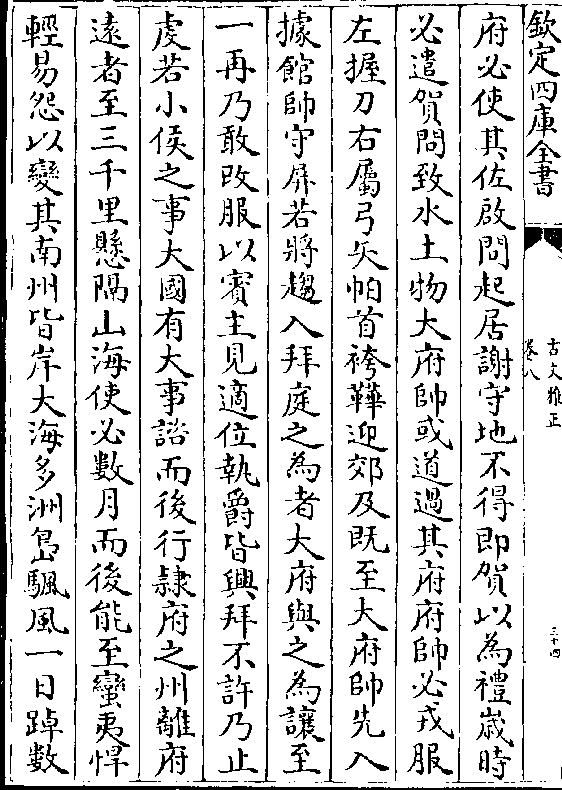 欽定四庫全書
古文雅正
卷八
三十四
府必使其佐啟問起居謝守地不得即賀以為禮歲時
必遣賀問致水土物大府帥或道過其府府帥必戎服
左握刀右屬弓矢帕首袴鞾迎郊及既至大府帥先入
據館帥守屏若將趨入拜庭之為者大府與之為讓至
一再乃敢改服以賓主見適位執爵皆興拜不許乃止
虔若小侯之事大國有大事諮而後行隷府之州離府
遠者至三千里懸隔山海使必數月而後能至蠻夷悍
輕易怨以變其南州皆岸大海多洲島颿風一日踔數